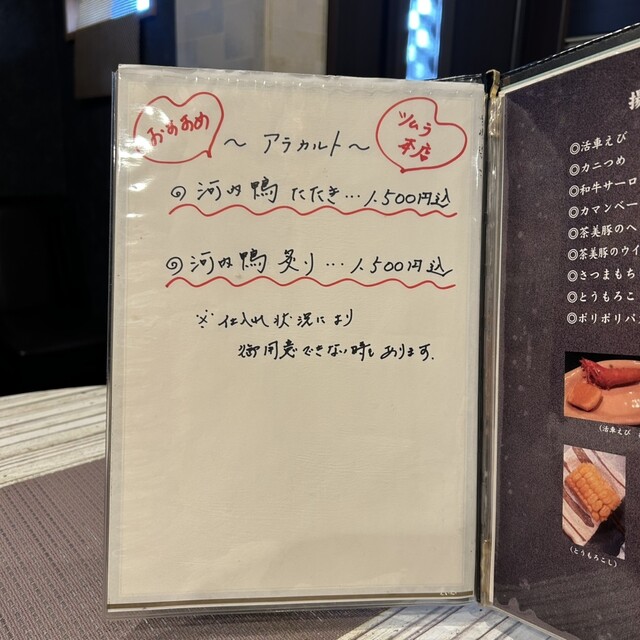 おすすめ
〜 アラカルト 〜
ツムラ
本店
河内鴨 たたき…1.500円込
河内鴨 炙り…1.500円込
※仕入れ状況により
御用意できない時もあります.
◎活車えび
◎カニつめ
◎和牛サーロ
◎カマンベー
◎茶美豚のヘ
◎茶美豚のウイ
◎さつまもち
◎とうもろこ
◎ポリポリパ
(活車えび
(とうもろこし)